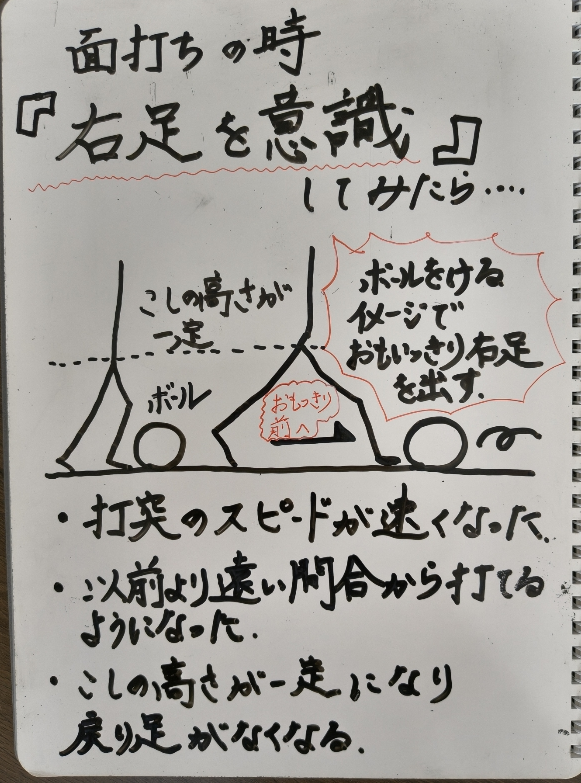 面打ちの時
『右足を意識』
してみたら‥‥
こしの高さが
一定
ボール
おもっきり
前へ
ボールをける
イメージで
おもいっきり右足
を出す.
・打突のスピードが速くなった.
・以前より遠い間合から打てる
ようになった.
・こしの高さが一定になり
戻り足がなくなる.